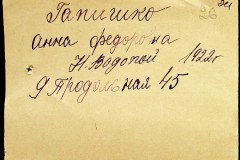 Гапишко 26
анна федоровна
Н. Водопой 1922г
9 Продольная 45